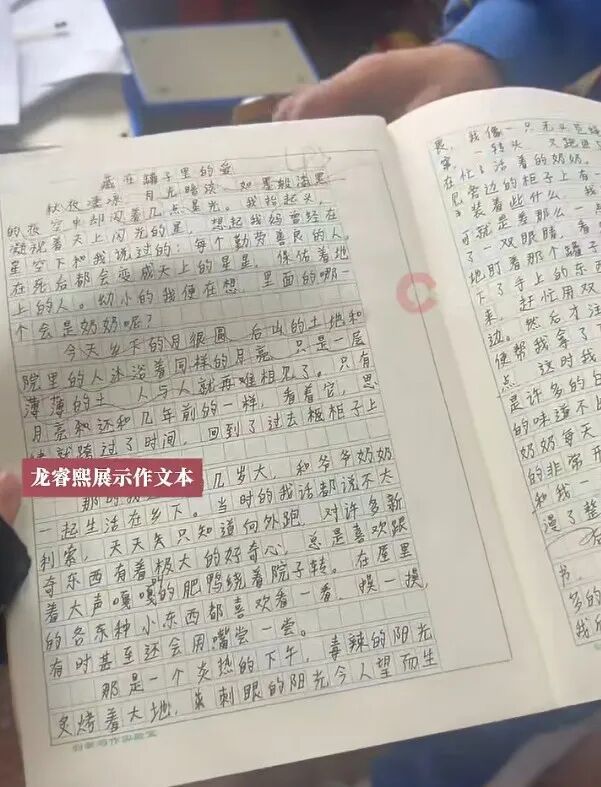 藏在罐子里的爱
秋夜凄凉,月光暗淡,如墨般漆黑
的夜空中却闪着几点星光。我抬起头,
凝视着天上闪光的星,想起我妈曾经在
星空下和我说过的:每个勤劳善良的人
在死后都会变成天上的星星,保佑着地
上的人。幼小的我便在想,里面的哪一
个会是奶奶呢?
今天乡下的月很圆,后山的土地和
院里的人沐浴着同样的月亮,只是一层
薄薄的土,人与人就再难相见了。只有
月亮和还和几年前的一样,看着它,思
绪就跨过了时间,回到了过去板柜子上
龙睿熙展示作文本
那时我 几岁大,和爷爷奶奶
一起生活在乡下。当时的我话都说不大
利索,天天只知道向外跑,对许多新
奇东西有着极大的好奇心,总是喜欢跟
着大声嘎嘎的肥鸭绕着院子转。在屋里
的各东种小东西都喜欢看一看,摸一摸,
有时甚至还会用嘴尝一尝。
那是一个炎热的下午,毒辣的阳光
炙烤着大地,刺眼的阳光令人望而生
畏,我像一只无头苍蝇
一转头,又跑进
在忙活着的奶奶。
旁边的柜子上有一
装着些什么,我
可就是差那么一点
了一双眼睛,看
地盯着那个罐子
下了手上的东西
来,赶忙用双
边。然后才注
便帮我拿了下
点,这时我
是许多的白
的味道不比
奶奶每天
的非常开
和我一
漫了整
书,
多的
我